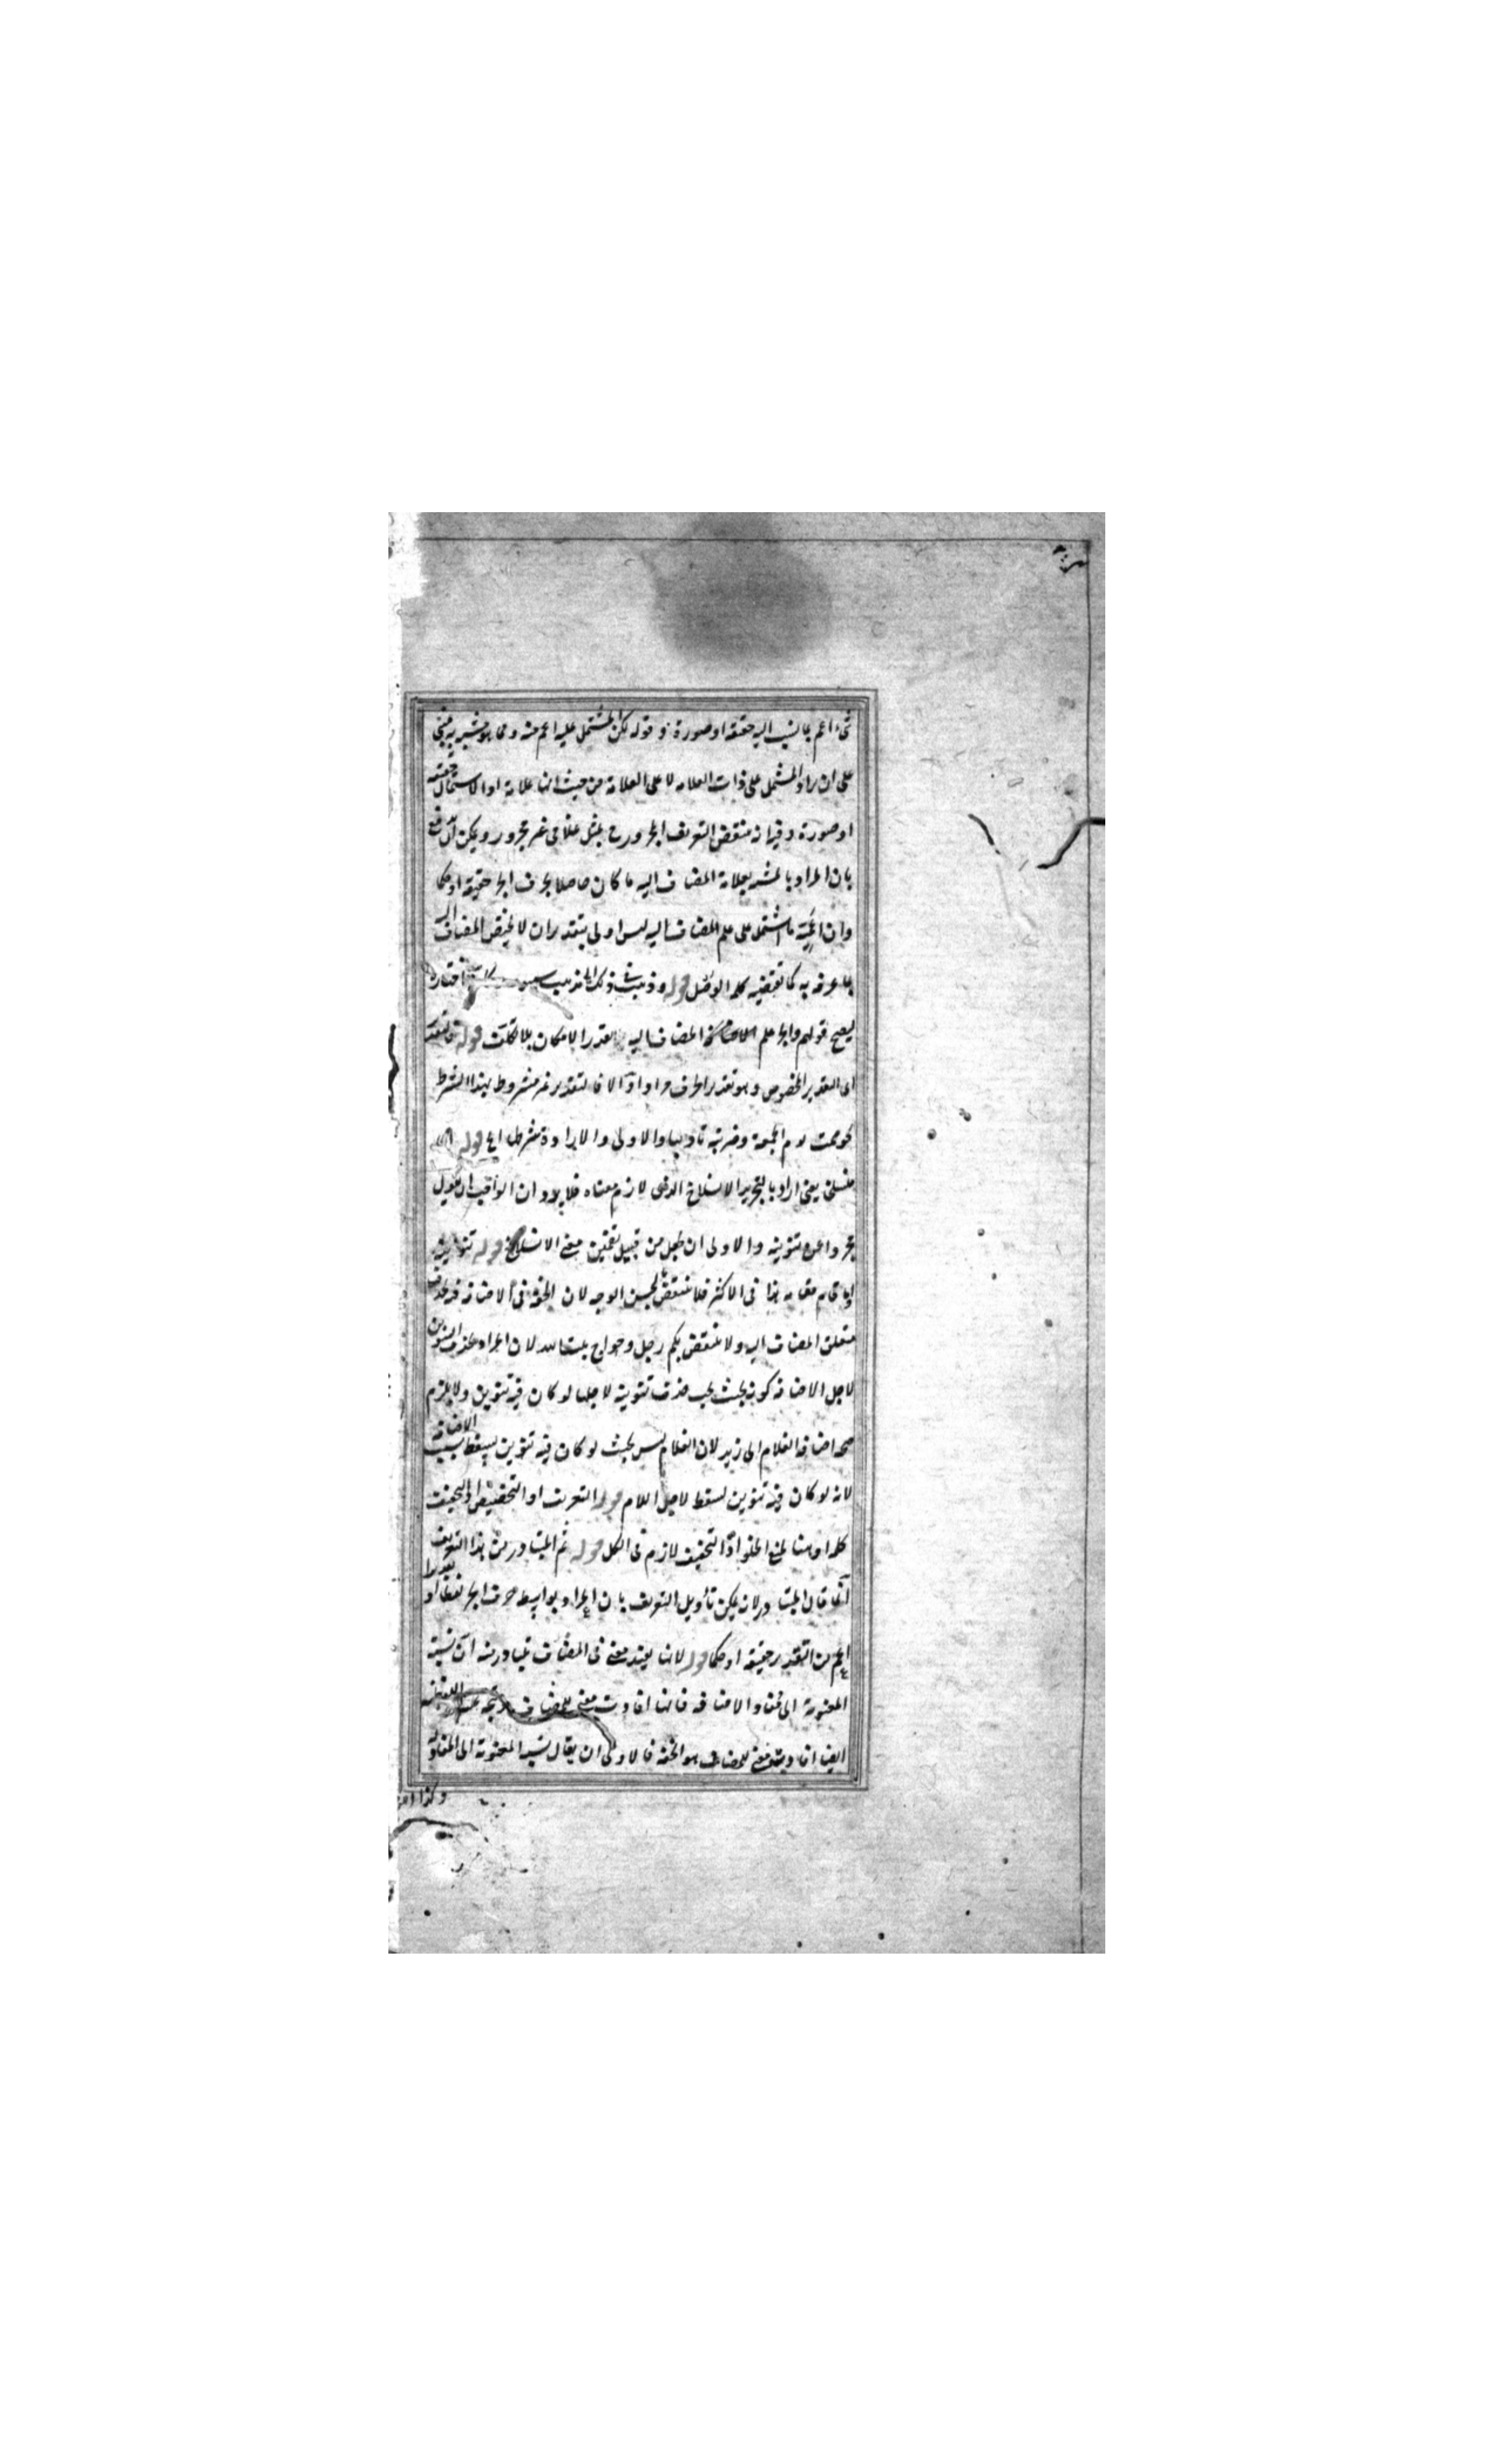 شیء اعم بالنسب اليه حقيقة او صورة و قوله لكن المشتمل عليه اعم منه ومما هو مشبه به مبنى
على ان يراد المشتمل على ذات العلامه لا على العلامة من حيث انها علامة او الاشتمال حقيقة
او صورة وفيه انه ينتقض التعريف المجرور ح بمثل غلامى غير مجرور ويمكن ان يدفع
بان المراد بالمشتمل بعلامة المضاف اليه ما كان حاصلا بحرف الجر حقيقة او حكما
وان اعمية ما اشتمل على علم المضاف اليه ليس اولى بتقدير ان لا يختص المضاف اليه
بما عرفه به كما تقتضيه كلمة الوصل قوله وذهب فى ذلك الى مذهب سيبويه اختاره
ليصح قولهم والجر علم الاضافة المضاف اليه بقدر الامكان بلا تكلف قوله فالتقدير
اى التقدير المخصوص وهو تقدير الحرف مرادا والا فالتقدير غير مشروط بهذا الشرط
نحو قمت يوم الجمعة وضربته تاديبا والاولى والارادة شرطها الخ قوله
منسلخ يعنى اراد بالتجريد الانسلاخ الذى لازم معناه فلا يرد ان الواجب ان يقول
مجردا عن تنوينه والاولى ان يجعل من قبيل تضمين معنى الانسلاخ قوله تنوينه
او ما قام مقامه هذا فى الاكثر فلا ينتقض بالحسن الوجه لان الخفة فى الاضافة فيه بحذف
متعلق المضاف اليه ولا ينتقض بكم رجل وحواج بيت الله لان المراد بحذف التنوين
لاجل الاضافة كونه بحيث يجب حذف تنوينه لاجلها لو كان فيه تنوين ولا يلزم
صحة اضافة الغلام الى زيد لان الغلام ليس بحيث لو كان فيه تنوين يسقط بسبب الاضافة
لانه لو كان فيه تنوين لسقط لاجل اللام قوله التعريف او التخصيص او التخفيف
كلمة او هنا لمنع الخلو اذ التخفيف لازم فى الكل قوله ثم المتبادر من هذا التعريف
انما قال المتبادر لانه يمكن تأويل التعريف بان المراد بواسطة حرف الجر لفظا او تقديرا
اعم من التقدير حقيقة او حكما قوله لانها يفيد معنى فى المضاف يتبادر منه ان نسبة
المعنوية الى المعنى والاضافة فانها افادت معنى للمضاف اللفظية
ايضا افادت معنى للمضاف هو الخفة فالاولى ان يقال نسبة المعنوية الى المعنى
وكذا